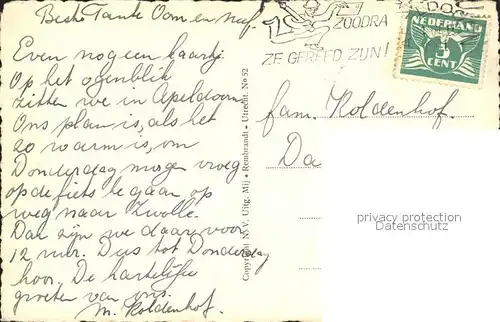 Beste Tante Oom en neef.
Even nog een kaartje
Op het ogenblik
zitten we in Apeldoorn.
Ons plan is, als het
zo warm is, om
Donderdag morgen vroeg
op de fiets te gaan op
weg naar Zwolle.
Dan zijn we daar voor
12 uur. Dus tot Donderdag
hoor. De hartelijke
groeten van ons.
M. Koldenhof.
Copyright N.V. Uitg. Mij • Rembrandt • Utrecht. No 52
ZOODRA
ZE GEREED ZIJN!
NEDERLAND
CENT
fam. Koldenhof.
Da
privacy protection